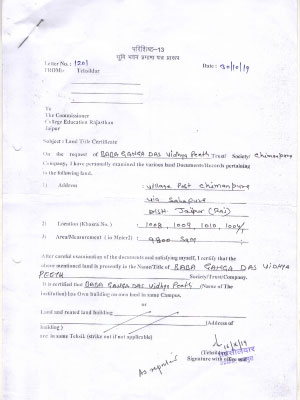 परिशिष्ट-13
भूमि भवन प्रमाण पत्र प्रारूप
Letter No.: 1201
Date: 30/10/19
FROM:- Tehsildar
To
The Commissioner
College Education Rajasthan
Jaipur
Subject: Land Title Certificate
On the request of BABA GANGA DAS Vidhya Peeth Trust/ Society/ Chimanpura
Company, I have personally examined the various land Documents/Records pertaining
to the following land.
1) Address : Village Post Chimanpura
via
Distt. Jaipur (Raj)
2) Location (Khasra No.) : 1008, 1009, 1010,
3) Area/Measurement (in Meter): 9800 Sqm
After careful examining of the documents and satisfying myself, I certify that the
above mentioned land is presently in the Name/Title of BABA GANGA DAS VIDHYA
PEETH Society/Trust/Company.
It is certified that BABA GANGA DAS Vidhya Peeth (Name of The
institution) has Own building on own land in same Campus.
or
Land and rented land building
(Address of
building)
are in same Tehsil. (strike out if not applicable)
(Tehsildar)
Signature with office seal